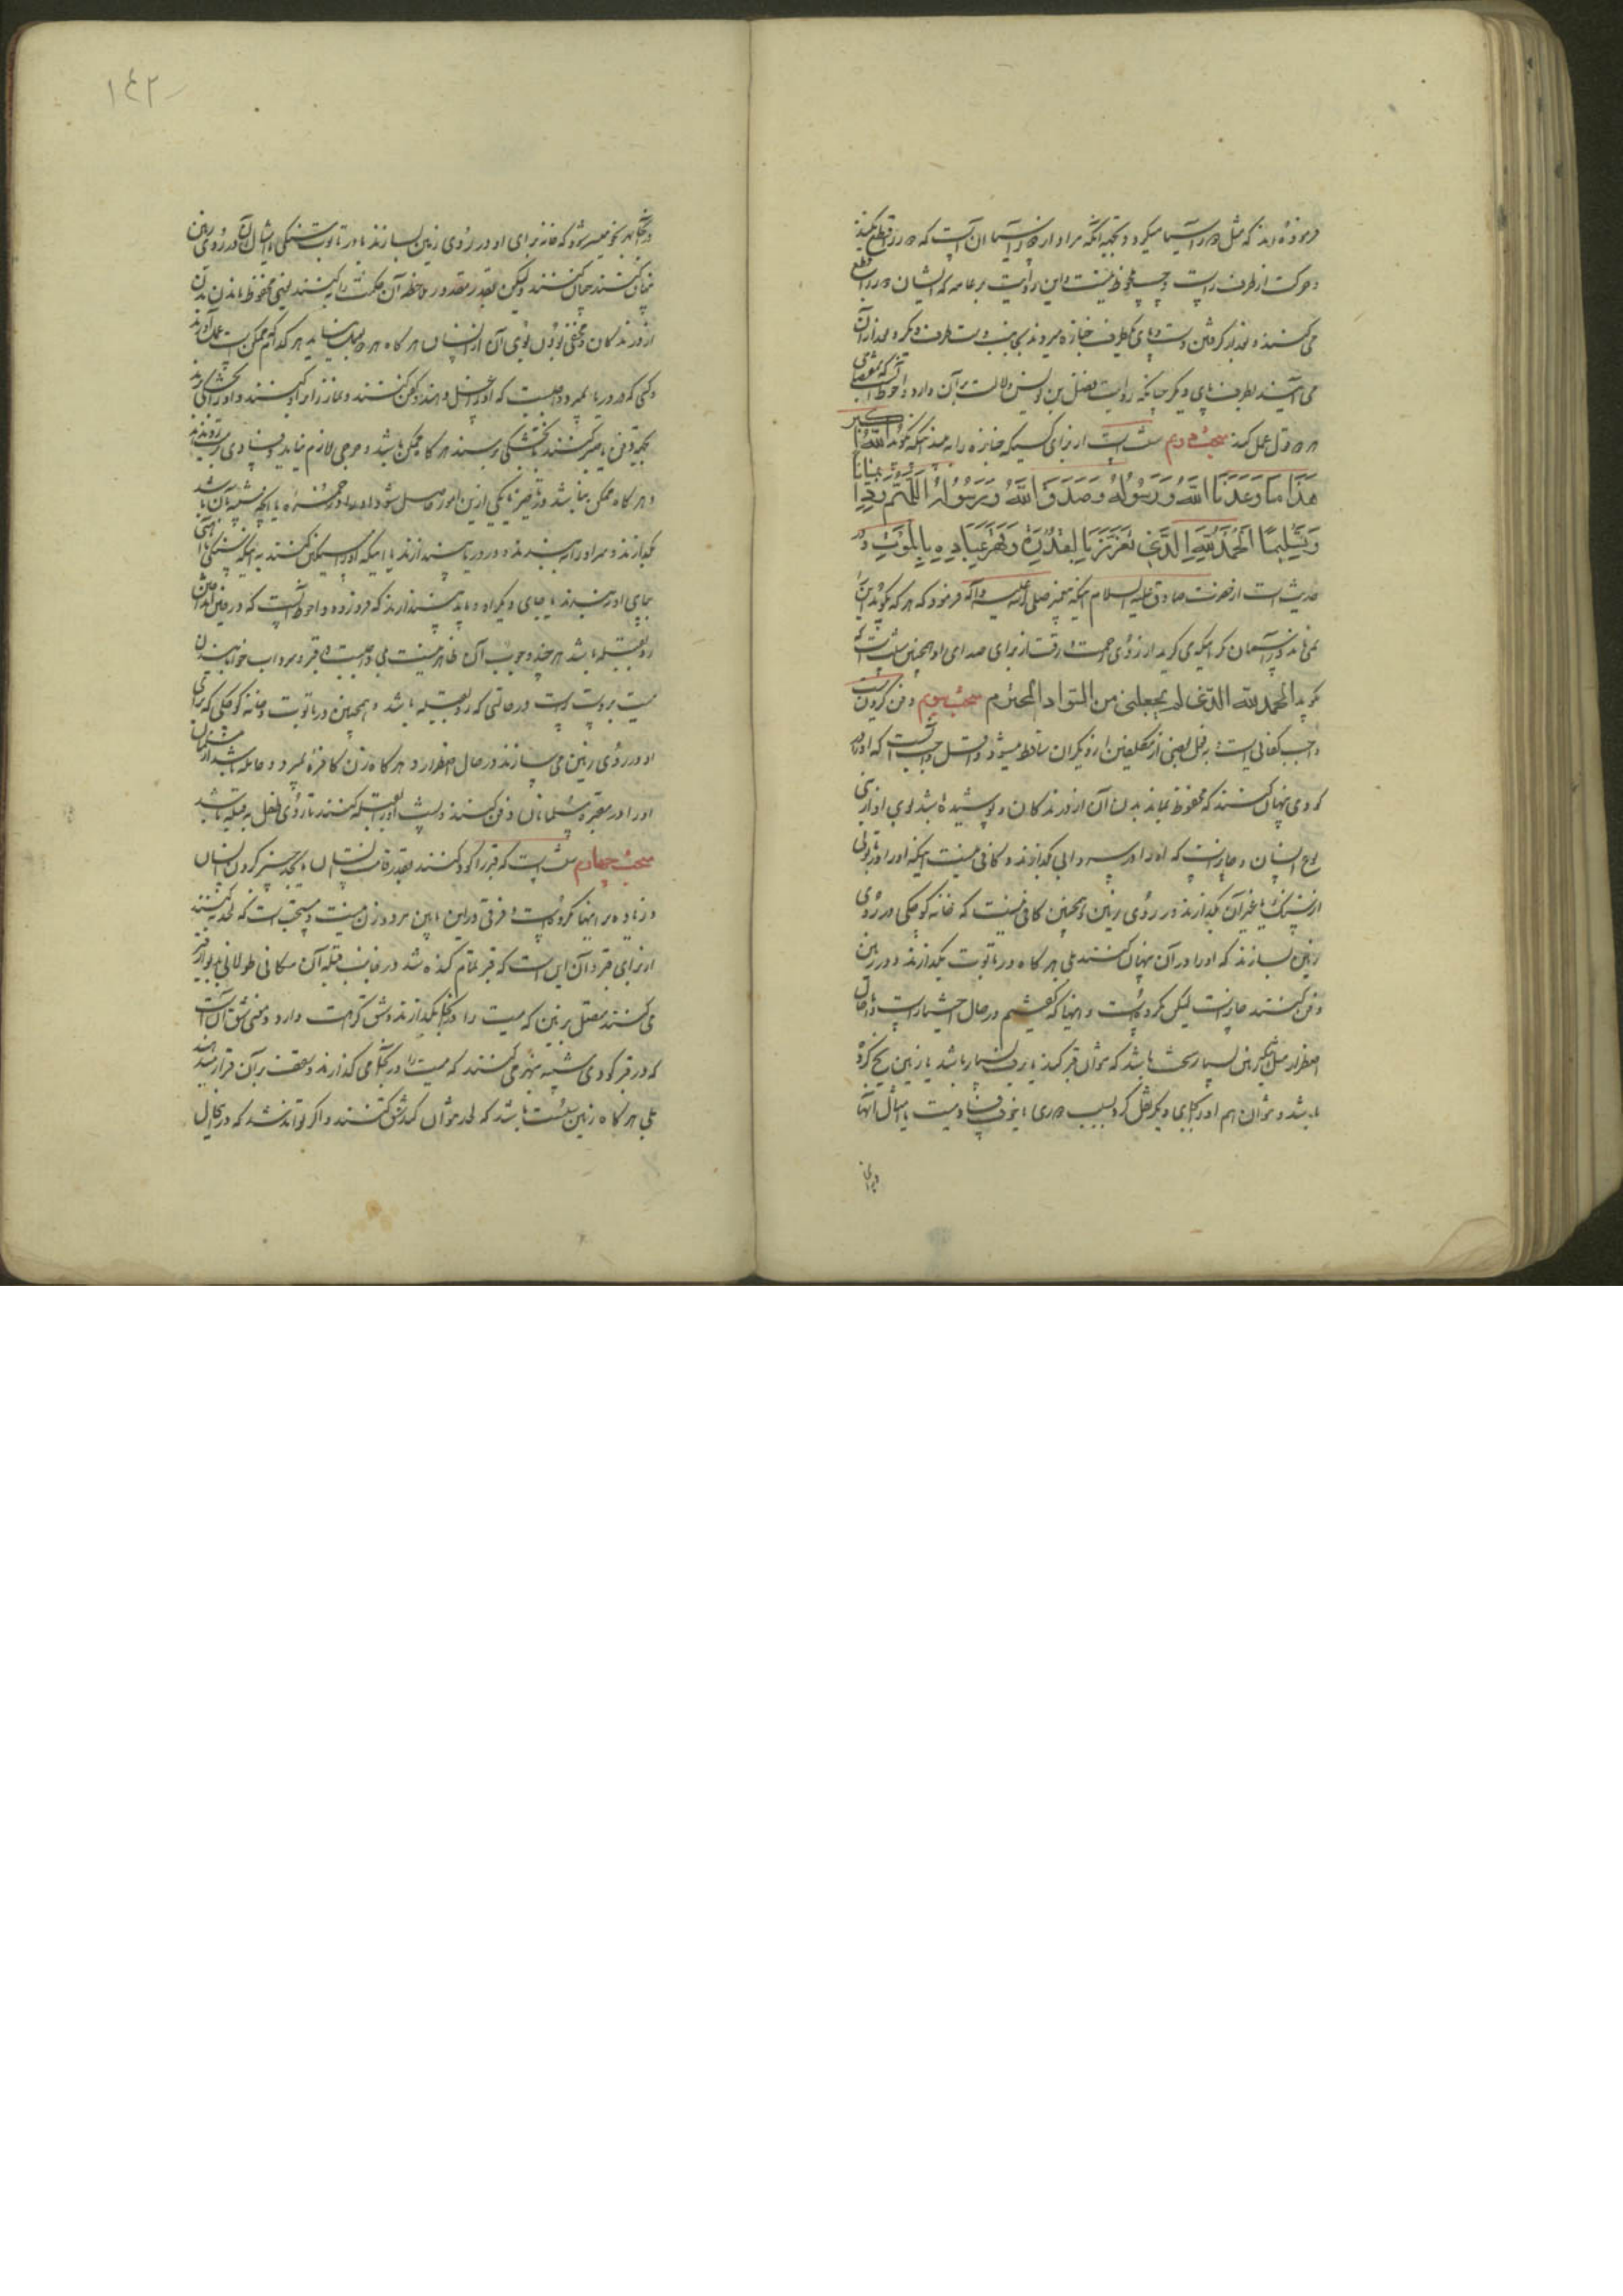 فرموده‌اند که مثل دور آسیا میگردد و بتحقیق آنکه مراد از دور آسیا آن است که دور را قطع نکند
و حرکت از طرف راست و چپ ملحوظ نیست و این رد است بر عامه که ایشان دور را قطع
می کنند و بعد از گرفتن دست و پای یکطرف جنازه میروند بجانب دست طرف دیگر و بعد از آن
می آیند بطرف پای دیگر چنانکه روایت فضل بن یونس دلالت بر آن دارد و احوط آنست که بمقتضای
هر دو قول عمل کند مبحث دوم سنت است از برای کسیکه جنازه را به بیند اینکه بگوید الله اکبر
هذا ما وعدنا الله ورسوله وصدق الله ورسوله اللهم زدنا ایمانا
وتسلیما الحمد لله الذی تعزز بالقدرة وقهر عباده بالموت و در
حدیث است از حضرت صادق علیه السلام اینکه پیغمبر صلی الله علیه وآله فرمود که هر که بگوید این
نمی‌ماند در آسمان مگر اینکه می گرید از روی رحمت و رقت از برای صدای او و همچنین سنت است که
گوید الحمد لله الذی لم یجعلنی من السواد المخترم مبحث سیم دفن کردن میت
واجب کفائی است به فعل بعضی از مکلفین از دیگران ساقط میشود و اقل واجب آنست که او را در
گودی پنهان کنند که محفوظ بماند بدن آن از درندگان و پوشیده باشد بوی او از بنی
نوع انسان و جایز نیست که او را در سردابی گذارند و کافی نیست اینکه او را در تابوتی
از سنگ یا غیر آن بگذارند در روی زمین و همچنین کافی نیست که خانه کوچکی در روی
زمین بسازند که او را در آن پنهان کنند بلی هر گاه در تابوت بگذارند و در زمین
دفن کنند جایز است لیکن مکروه است و اینها که گفتیم در حال اختیار است و در حال
اضطرار مثل اینکه زمین بسیار سخت باشد که نتوان قبر کند یا برف بسیار باشد یا زمین یخ کرده
باشد و نتوان هم او را بجای دیگر نقل کرد بسبب دوری یا خوف فساد میت یا امثال آنها
و بآنجا بهر نحو میسر شود که خانه برای او در روی زمین بسازند یا در تابوت سنگی و امثال آن در روی زمین
پنهان کنند چنان کنند ولیکن بقدر مقدور ملاحظه آن حکمت را بکنند یعنی محفوظ ماندن بدن
از درندگان و مخفی بودن بوی آن از انسان هر گاه هر دو بعمل نیاید هر کدام ممکن است بعمل آورند
و کسی که در دریا بمیرد واجبست که او را غسل دهند و کفن کنند و نماز را بر او کنند و او را بخشکی برند
بجهة دفن یا صبر کنند تا بخشکی برسند هر گاه ممکن باشد و حرجی لازم نیاید و فسادی مترتب نشود
و هر گاه ممکن نباشد و تأخیر تا یکی ازین امور حاصل شود او را در خمره یا آنچه شبیه بآن باشد
بگذارند و سر او را به بندند و در دریا بیندازند یا اینکه او را سنگین کنند به اینکه سنگی یا آهنی
بپای او به بندند یا بجای دیگر او و باید بیندازند که فرو رود و احوط آنست که در حین انداختن
رو بقبله باشد هر چند وجوب آن ظاهر نیست بلی واجبست در قبر و سرداب خوابانیدن
میت بر دست راست در حالتی که رو بقبله باشد و همچنین در تابوت و خانه کوچکی که برای
او در روی زمین می سازند در حال اضطرار و هر گاه زن کافره بمیرد و حامله باشد از مسلمان
او را در مقبره مسلمانان دفن کنند و پشت او را بقبله کنند تا روی طفل به قبله باشد
مبحث چهارم سنت است که قبر را گود کنند بقدر قامت انسان یا بحد چنبر گردن انسان
و زیاده بر اینها مکروه است و فرقی در این مابین مرد و زن نیست و مستحب است که لحد بکنند
از برای قبر و آن این است که قبر تمام کنده شد در جانب قبله آن مکانی طولانی بدیوار قبر
می کنند متصل بزمین که میت را در آنجا بگذارند و شق کراهت دارد و معنی شق آن است
که در قبر گودی شبیه بنهر می کنند که میت را در آنجا می گذارند و سقف بر آن قرار میدهند
بلی هر گاه زمین سست باشد که لحد نتوان کند شق کنند و اگر تواند شد که در این حال